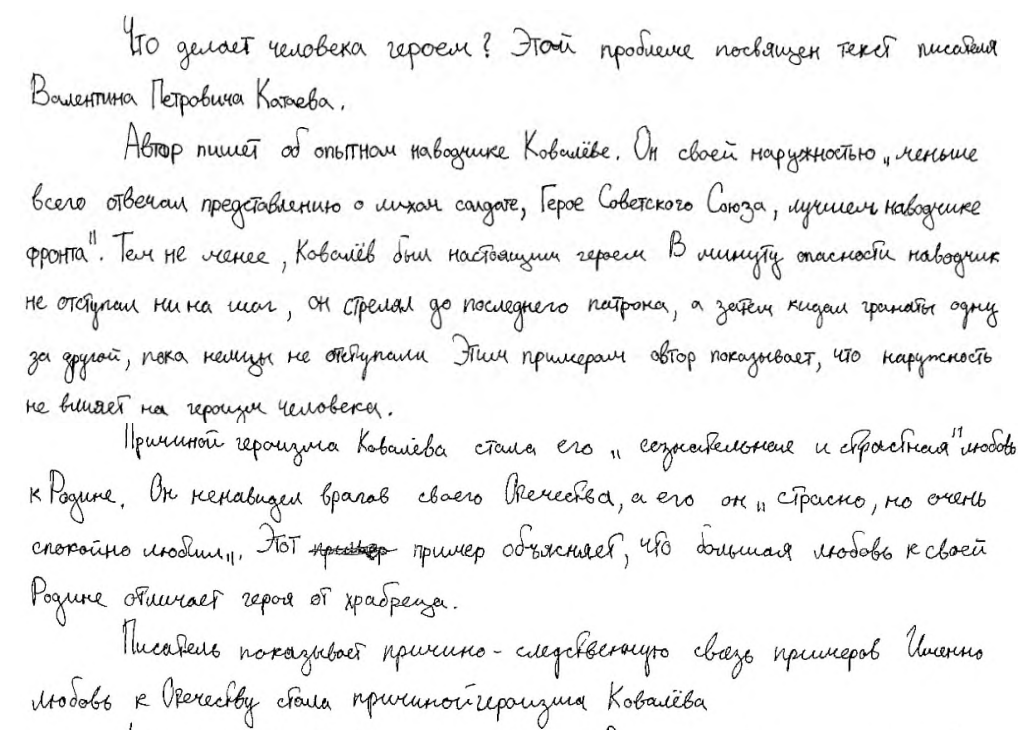 Что делает человека героем? Этой проблеме посвящен текст писателя
Валентина Петровича Катаева.
Автор пишет об опытном наводчике Ковалёве. Он своей наружностью „меньше
всего отвечал представлению о лихом солдате, Герое Советского Союза, лучшем наводчике
фронта". Тем не менее, Ковалёв был настоящим героем В минуту опасности наводчик
не отступал ни на шаг, он стрелял до последнего патрона, а затем кидал гранаты одну
за другой, пока немцы не отступали Этим примером автор показывает, что наружность
не влияет на героизм человека.
Причиной героизма Ковалёва стала его „сознательная и страстная" любовь
к Родине. Он ненавидел врагов своего Отечества, а его он „страсно, но очень
спокойно любил„. Этот пример объясняет, что большая любовь к своей
Родине отличает героя от храбреца.
Писатель показывает причино-следственную связь примеров Именно
любовь к Отечеству стала причиной героизма Ковалёва